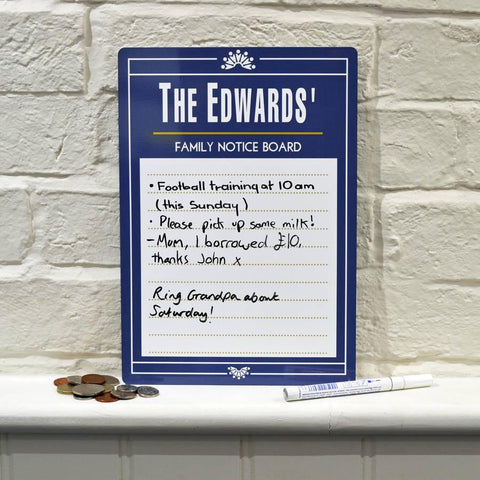 THE EDWARDS'
FAMILY NOTICE BOARD
• Football training at 10am
(this Sunday)
• Please pick up some milk!
- Mom, I borrowed £10,
thanks John x
Ring Grandpa about
Saturday!